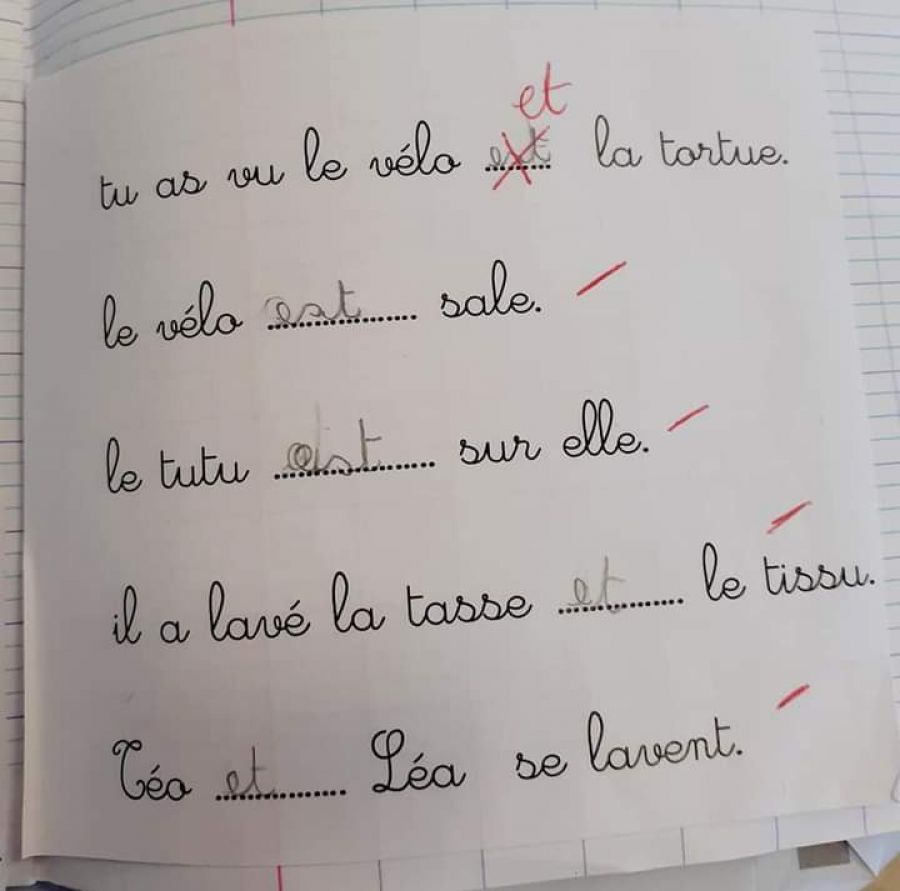 et
tu as vu le vélo est la tortue.
le vélo est sale.
le tutu est sur elle.
il a lavé la tasse et le tissu.
Téo et Léa se lavent.